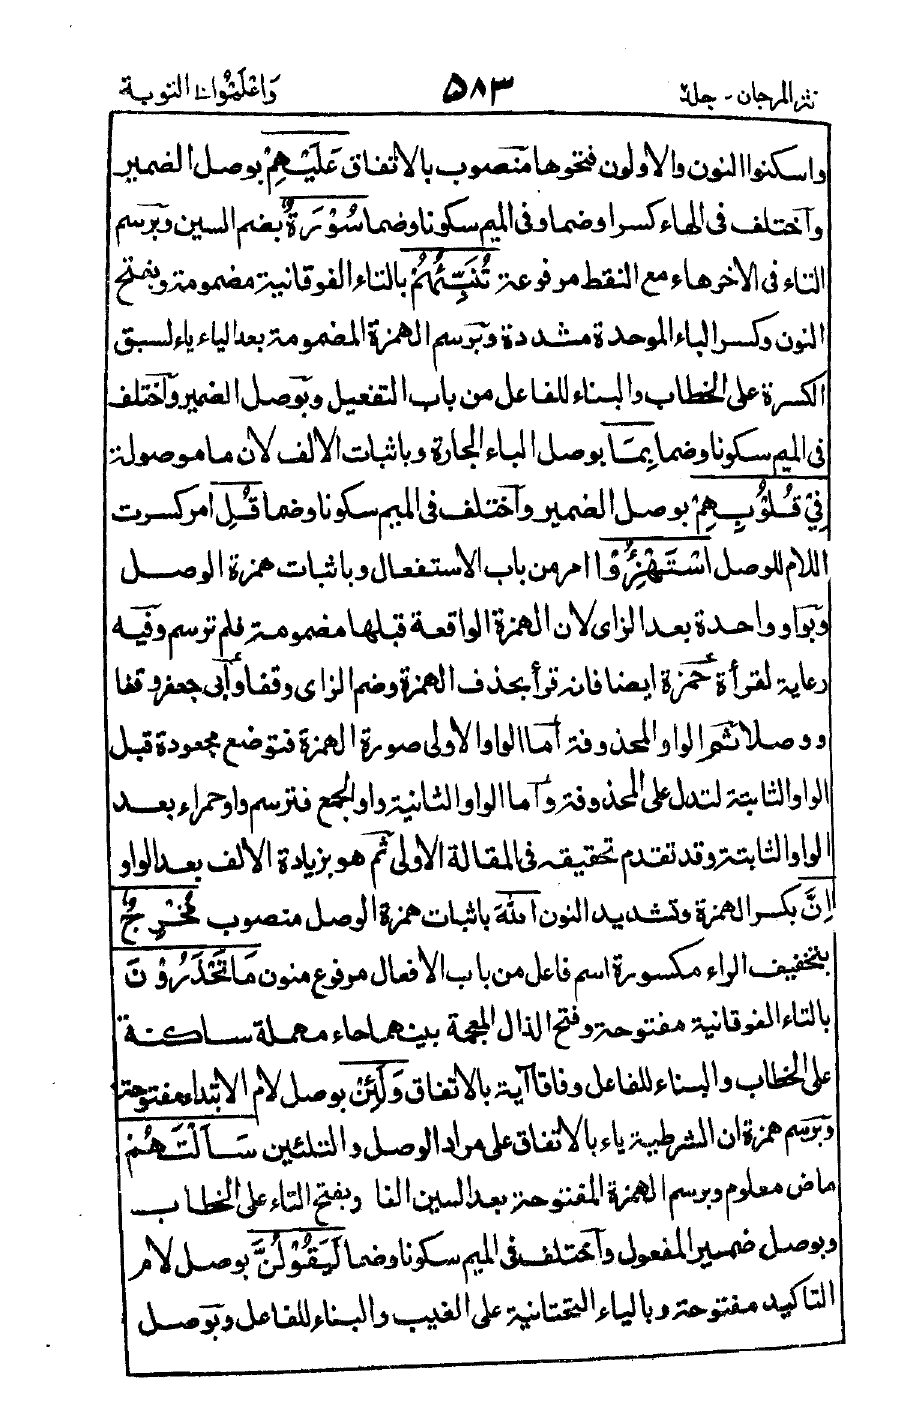 نثر المرجان - جلد٢ ٥٨٣ وَاعْلَمُوا ١٠ التوبة
واسكنوا النون والاولون فتحوها منصوب بالاتفاق عَلَيْهِمْ بوصل الضمير
وآختلف فى الهاء كسرا وضما وفى الميم سكونا وضما سُوْرَةٌ بضم السين وبرسم
التاء فى الاخرهاء مع النقط مرفوعة تُنَبِّئُهُمْ بالتاء الفوقانية مضمومة وبفتح
النون وكسر الباء الموحدة مشددة وبرسم الهمزة المضمومة بعد الياء ياء لسبق
الكسرة على الخطاب والبناء للفاعل من باب التفعيل وبوصل الضمير وآختلف
فى الميم سكونا وضما بِمَا بوصل الباء الجارة وباثبات الالف لان ما موصولة
فِيْ قُلُوْبِهِمْ بوصل الضمير وآختلف فى الميم سكونا وضما قُلِ امر كسرت
اللام للوصل اسْتَهْزِءُوْا امر من باب الاستفعال وباثبات همزة الوصل
وبواو واحدة بعد الزاى لان الهمزة الواقعة قبلها مضمومة فلم ترسم وفيه
رعاية لقرأة حمزة ايضا فانه قرأ بحذف الهمزة وضم الزاى وقفا وأبى جعفر وقفا
ووصلا ثم الواو المحذوفة أما الواو الاولى صورة الهمزة فتوضع مجعودة قبل
الواو الثابتة لتدل على المحذوفة وأما الواو الثانية واو الجمع فترسم واو حمراء بعد
الواو الثابتة وقد تقدم تحقيقه فى المقالة الاولى ثم هو بزيادة الالف بعد الواو
اِنَّ بكسر الهمزة وتشديد النون اللهَ باثبات همزة الوصل منصوب مُخْرِجٌ
بتخفيف الراء مكسورة اسم فاعل من باب الافعال مرفوع منون مَا تَحْذَرُوْنَ
بالتاء الفوقانية مفتوحة وفتح الذال المعجمة بينهما حاء مهملة ساكنة
على الخطاب والبناء للفاعل وفاقا آية بالاتفاق وَلَئِنْ بوصل لام الابتداء مفتوحة
وبرسم همزة ان الشرطية ياء بالاتفاق على مراد الوصل والتلئين سَاَلْتَهُمْ
ماض معلوم وبرسم الهمزة المفتوحة بعد السين الفا وبفتح التاء على الخطاب
وبوصل ضمير المفعول وآختلف فى الميم سكونا وضما لَيَقُوْلُنَّ بوصل لام
التاكيد مفتوحة وبالياء التحتانية على الغيب والبناء للفاعل وبوصل